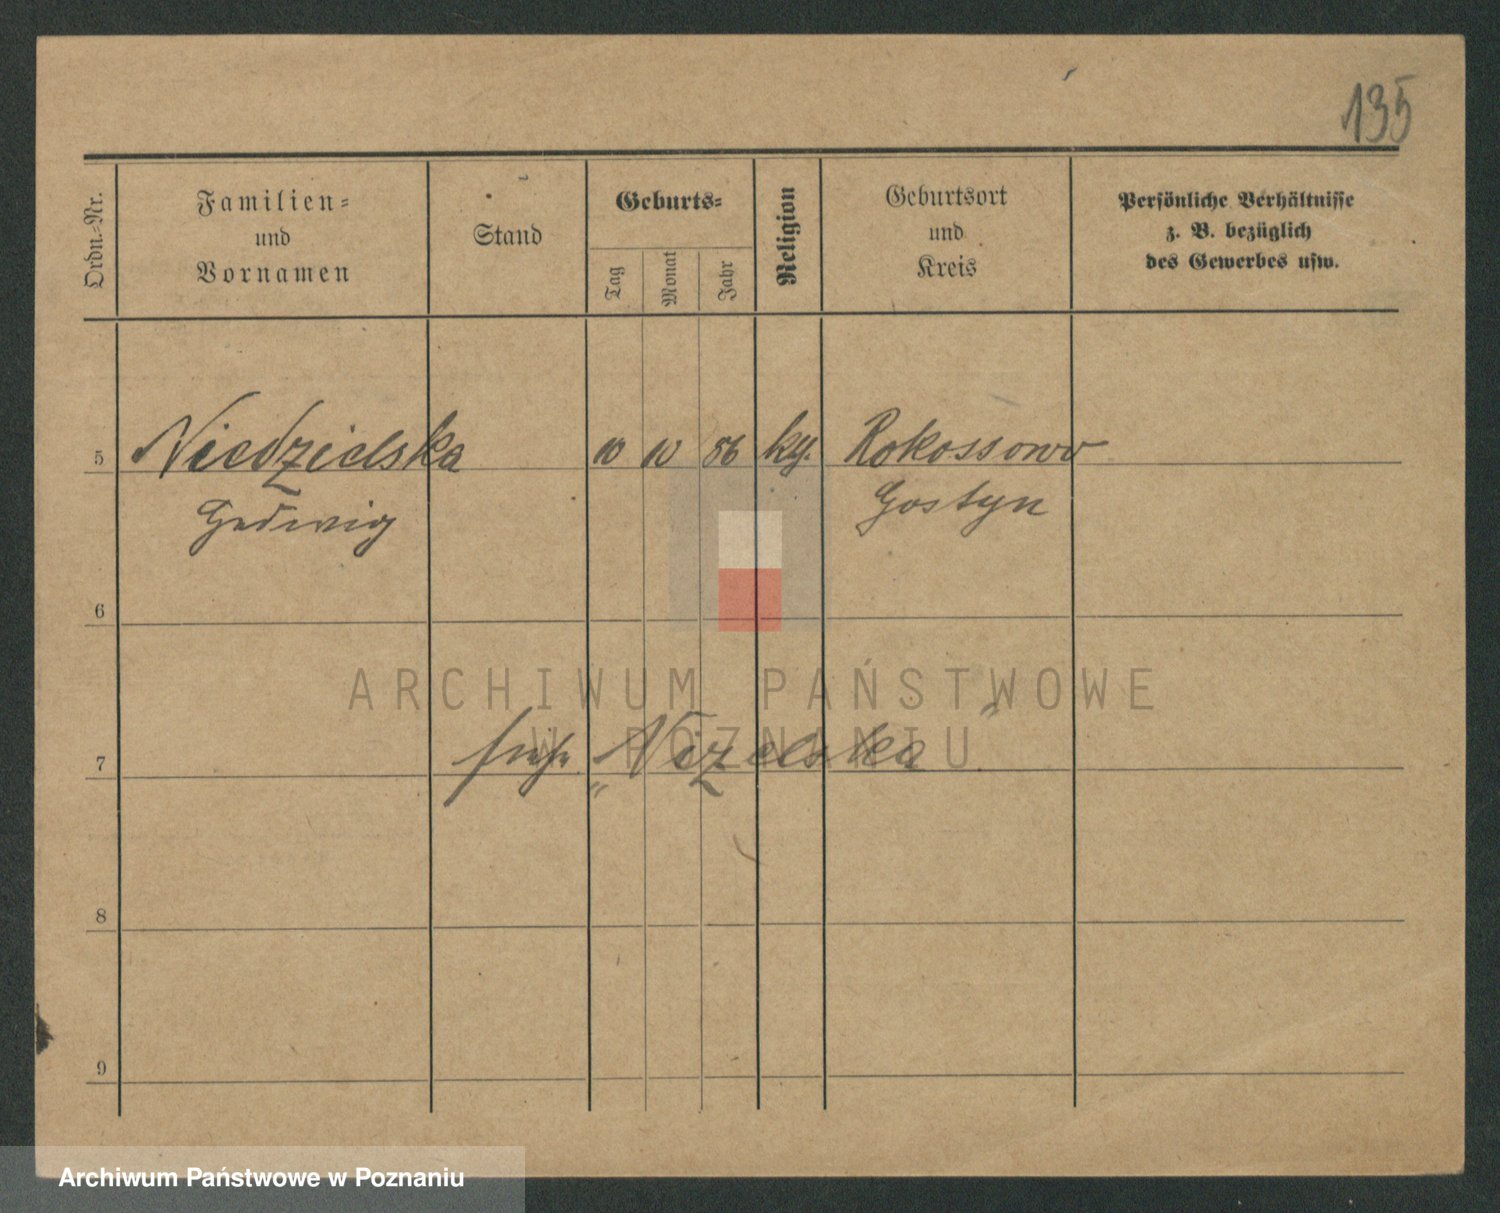 135
Ordn.-Nr.
Familien-
und
Vornamen
Stand
Geburts-
Tag
Monat
Jahr
Religion
Geburtsort
und
Kreis
Persönliche Verhältnisse
z. B. bezüglich
des Gewerbes usw.
5 Niedzielska 10 10 86 kth. Rokossowo
Hedwig Gostyn
6
ARCHIWUM PAŃSTWOWE
W POZNANIU
7 früh. „Nizelska"
8
9
Archiwum Państwowe w Poznaniu